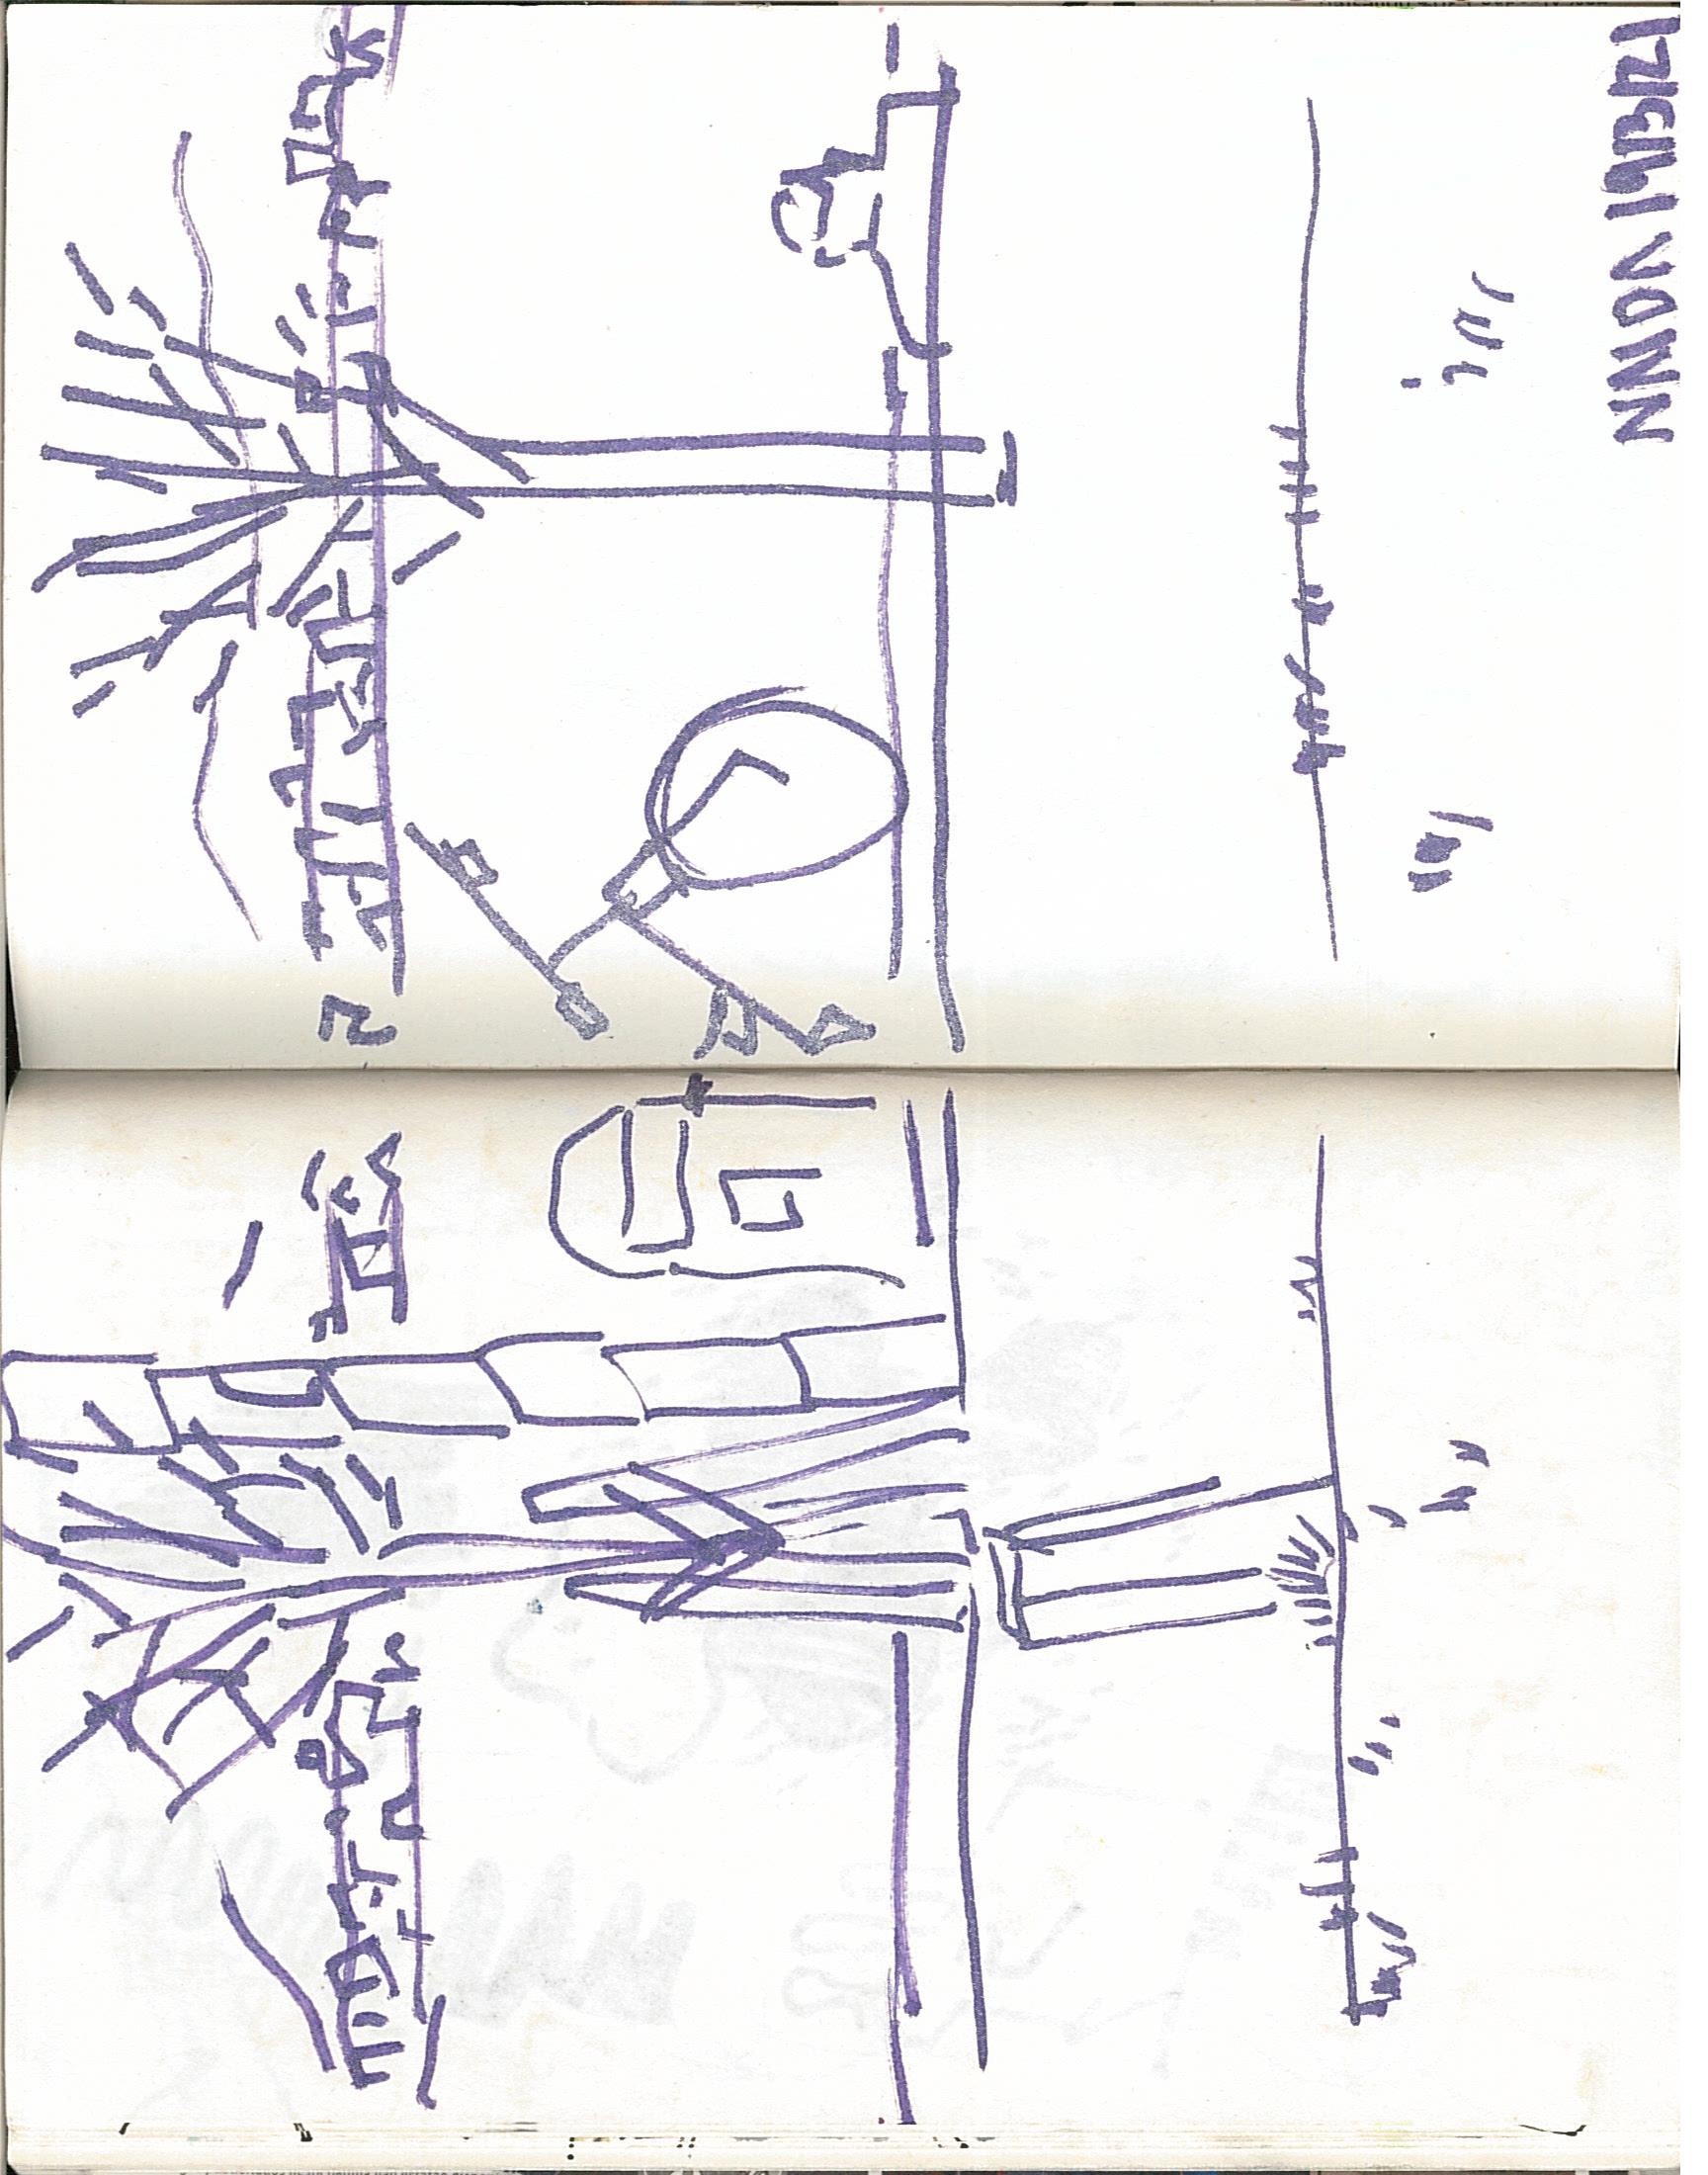 NNDA 19/3/21